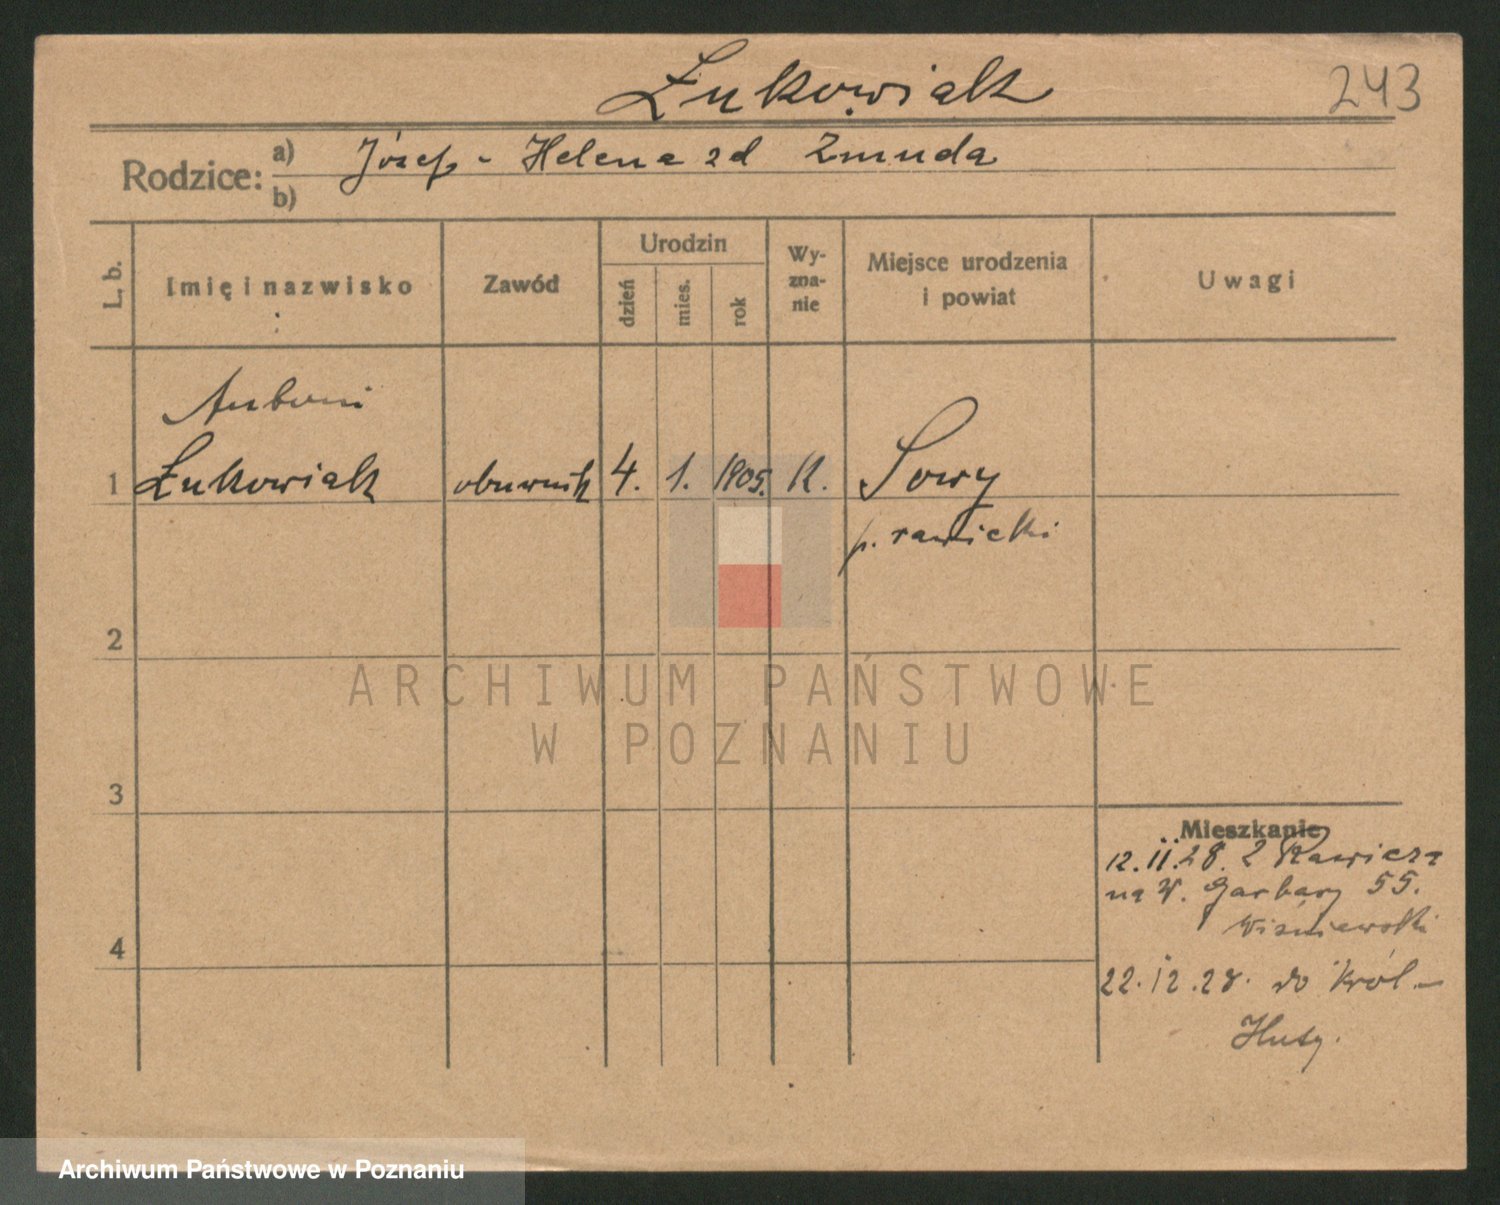 Łukowiak
243
Rodzice:
a) Józef - Helena zd Żmuda
b)
L. b.
Imię i nazwisko
Zawód
Urodzin
dzień
mies.
rok
Wy-
zna-
nie
Miejsce urodzenia
i powiat
Uwagi
Antoni
1 Łukowiak obuwnik 4. 1. 1905. K. Sowy
p. rawicki
2
ARCHIWUM PAŃSTWOWE
W POZNANIU
3
Mieszkanie
12.11.28. z Rawicza
na W. Garbary 55.
Wiśniewski
4
22.12.28. do Król-
Huty.
Archiwum Państwowe w Poznaniu